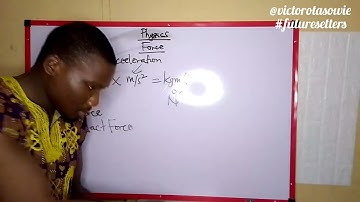 @victorotasowie
#futuresetters
Physics
Force
cceleration
x m/s² = kgm/
or
N
rce
act Force